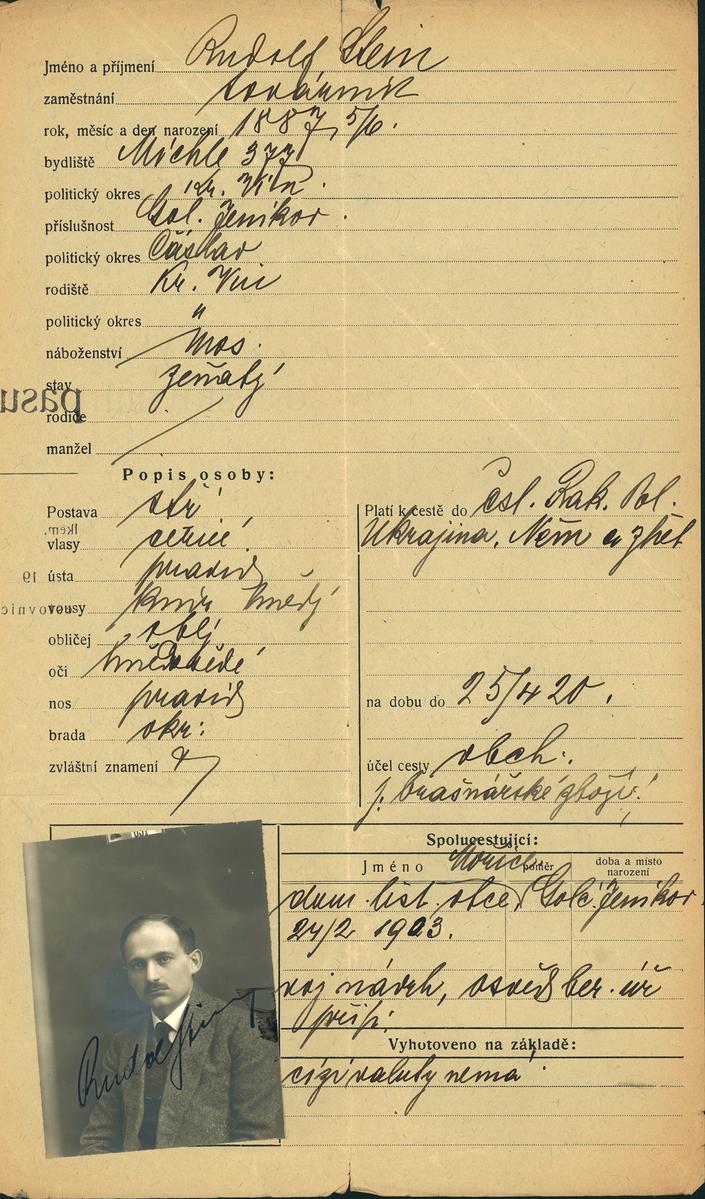 Jméno a příjmení Rudolf Stein
zaměstnání továrník
rok, měsíc a den narození 1887, 5/6.
bydliště Michle 377
politický okres Kr. Vin.
příslušnost Gol. Jeníkov.
politický okres Čáslav
rodiště Kr. Vin
politický okres "
náboženství mos.
stav ženatý
rodiče
manžel
Popis osoby:
Postava stř
vlasy
ústa pravid
vousy knír hnědý
obličej oblý
oči hnědošedé
nos pravid
brada okr:
zvláštní znamení
Platí k cestě do čsl. Rak. Pol.
Ukrajina, Něm a zpět
na dobu do 25/4 20.
účel cesty obch.
j. brašnářské zboží
Spolucestující:
Jméno poměr doba a místo narození
dom. list. otce Golč. Jeníkov
24/2 1903.
voj návrh, osvěd ber. úř
přip.
Vyhotoveno na základě:
cizí valuty nemá
Rudolf Stein
pasu
19